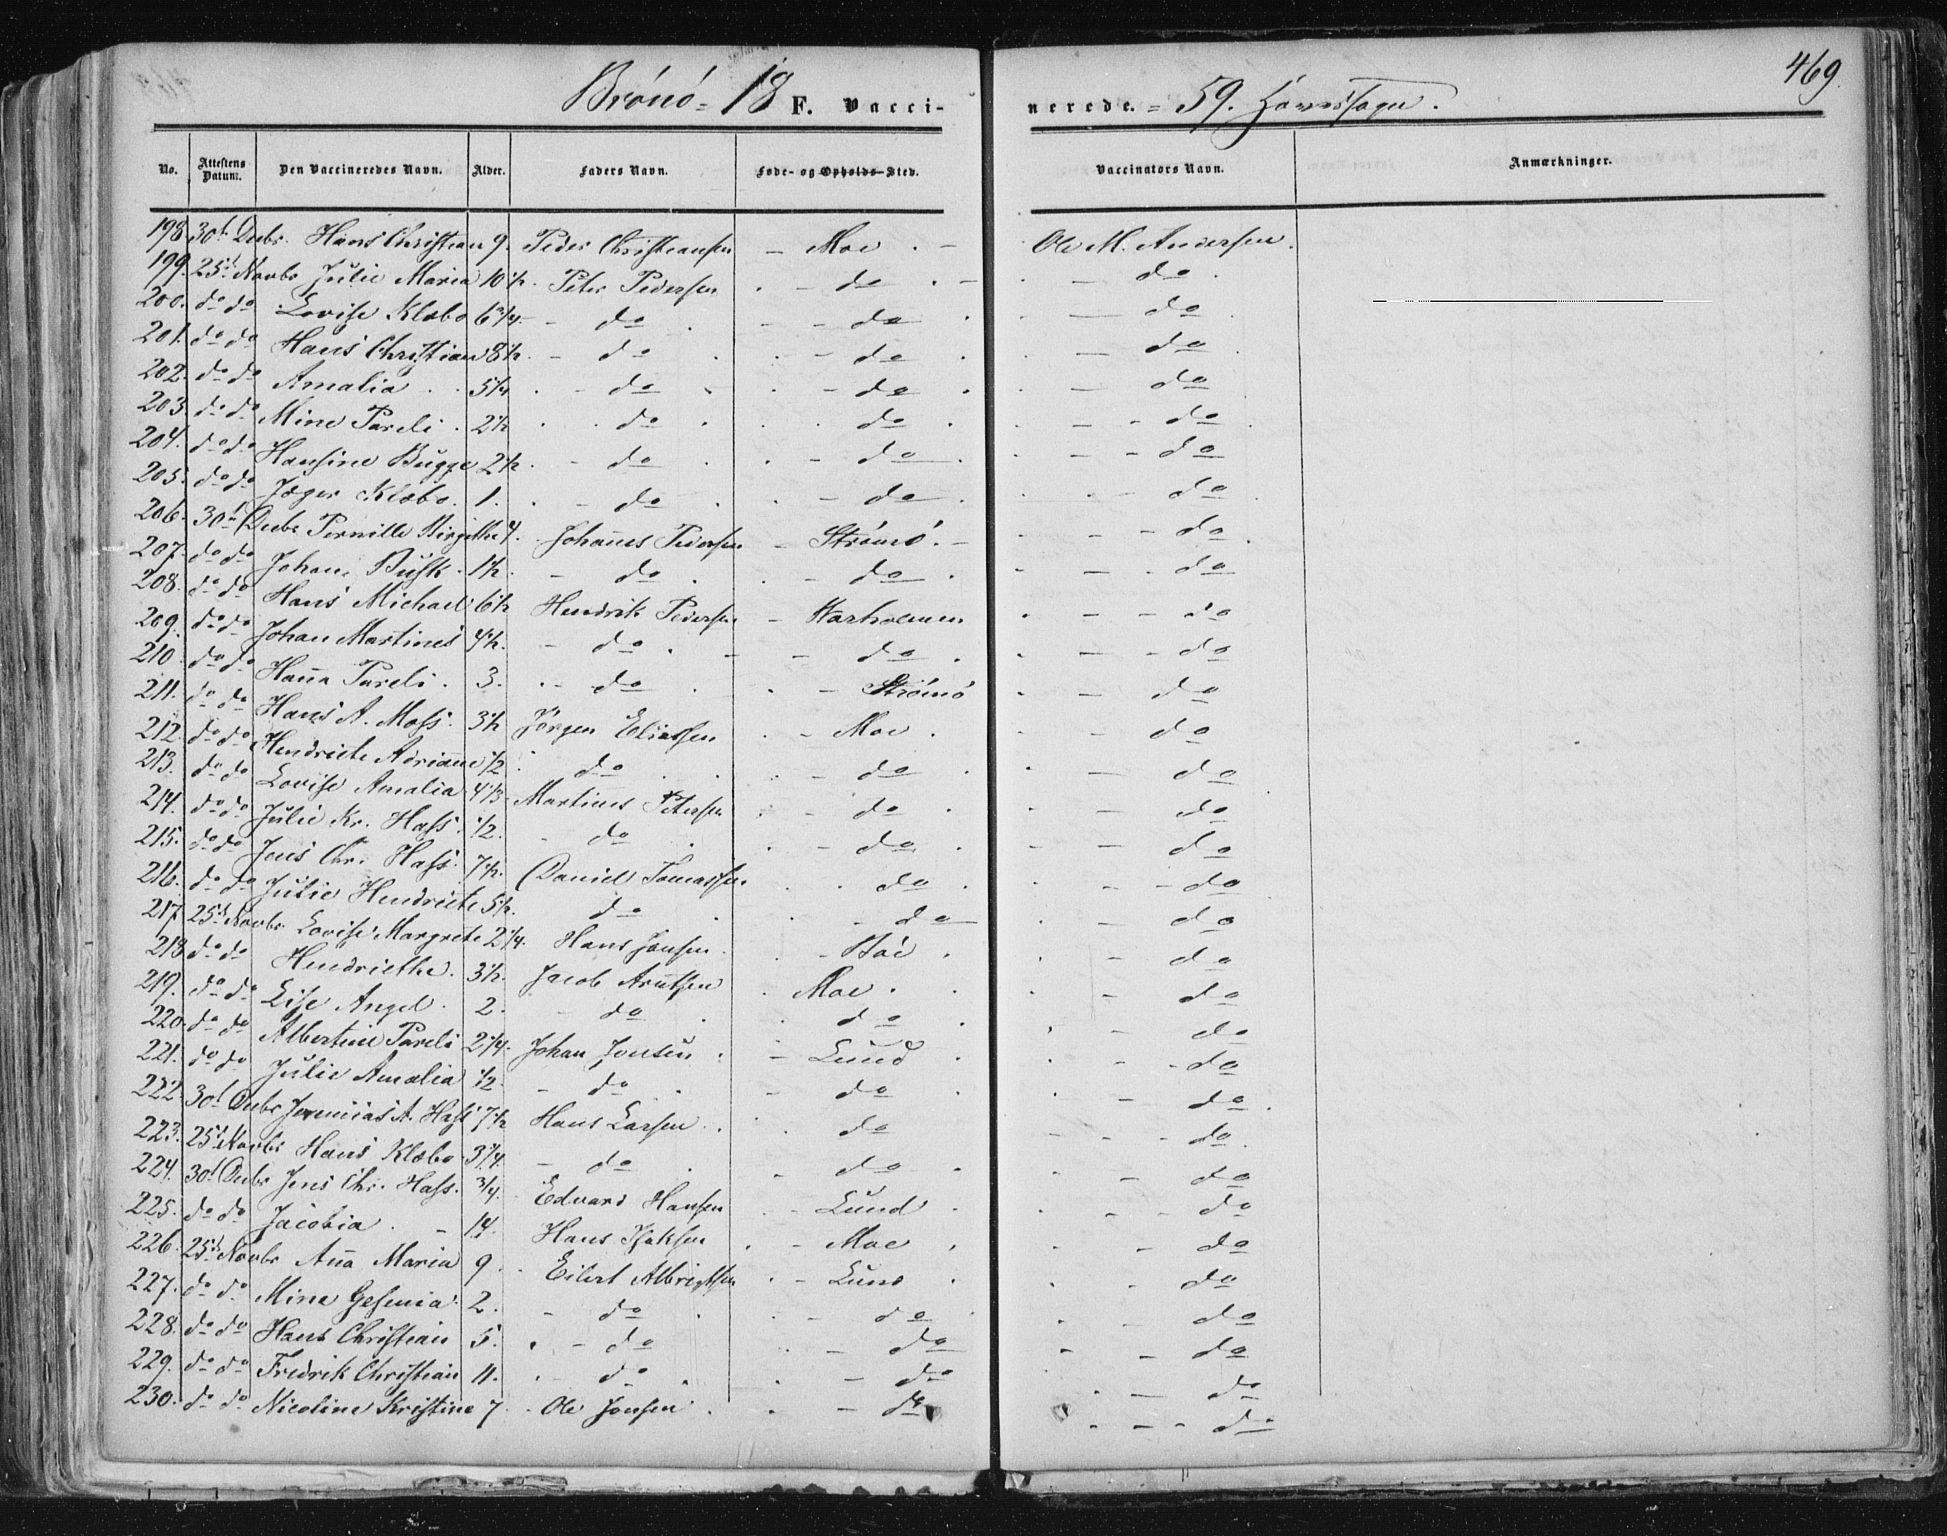 469.
Brönö - 18 F. Vacci- nerede. - 59. Hovedsogn.
No. Attestens Datum. Den Vaccineredes Navn. Alder. Faders Navn. Føde- og Opholds-Sted. Vaccinators Navn. Anmærkninger.
198 30t Decbr. Hans Christian 9. Peder Christiansen - Moe . - Ole M. Andersen.
199. 25t Novbr Julie Maria 10 1/2. Peter Pedersen . - do . - . - do .
200. do do Lovise Klæbo 6 3/4 - do . - - do . - do
201. do do Hans Christian 8 1/2. - do . - do . - do
202. do do Amalia . . 5 1/4 . - do - . - do . . - do
203. do do Mine Pareli . 2 1/2 . . do . . . do . . - - do
204. do do Hansine Bugge 2 1/2. - do . . - do . . - - do
205. do do Jæger Klæbo. 1. . - do . . - do . . - do
206. 30t Decbr Pernille Birgithe 4. Johannes Pedersen - Strömö. - . - - do .
207. do do Johan Busk . 1 1/2. - do . . - do . . - - do
208. do do Hans Michael 6 1/2 Hendrik Pedersen - Karholmen . - - do
209. do do Johan Martines 4 1/2. - do . - - do . . - - do
210. do do Hanna Pareli . 3. . - do . . - Strömö . - do
211. do do Hans A. Moss. 3 1/2 Jörgen Eliassen . - Moe . . - do
212. do do Hendricte Adrianne 1/2 . do . . - do . . - do
213. do do Lovise Amalia 4 1/3 Martines Petersen . - do . . - do
214. do do Julie Kr. Hass. 1/2. - do . . - do . . - do
215. do do Jens Chr. Hass. 7 1/2. Daniel Tomassen . . do . . - - do
216. do do Julie Hendricte 5 1/2. do . . - do . - do
217 25t Novbr Lovise Margrete 2 1/4. Hans Jansen . . - Böe . . - do
218 do do Hendriethe . 3 1/2. Jacob Arntsen . Moe . . . - do
219. do do Lise Angel . 2. - do . . do . . - do
220. do do Albertine Pareli 2 1/4. Johan Jonsen . - Lund . . - - do
221. do do Julie Amalia 1/2 - do . - do . - do .
222. 30t Decbr Jeremias A. Hass 7 1/2 Hans Larsen . . do - - - do .
223. 25t Novbr Hans Klæbo 3 1/4. - do . . do . - do
224. 30t Decbr Jens Chr. Hass. 3/4. Edvard Hansen . - Lund . . - - do
225. do do Jacobia . - 14. Hans Isaksen . - Moe . . - do
226. 25t Novbr Anna Maria 9 . Eilert Albrigtsen . - Lund . . - do
227. do do Mine Gesenia. 2. - do . . - do . - do
228. do do Hans Christian 5. . - do . - do . - do
229. do do Fredrik Christian 11. . - do . . - do . - do
230. do do Nicoline Kristine 7 . Ole Jonsen . . - do . - - do